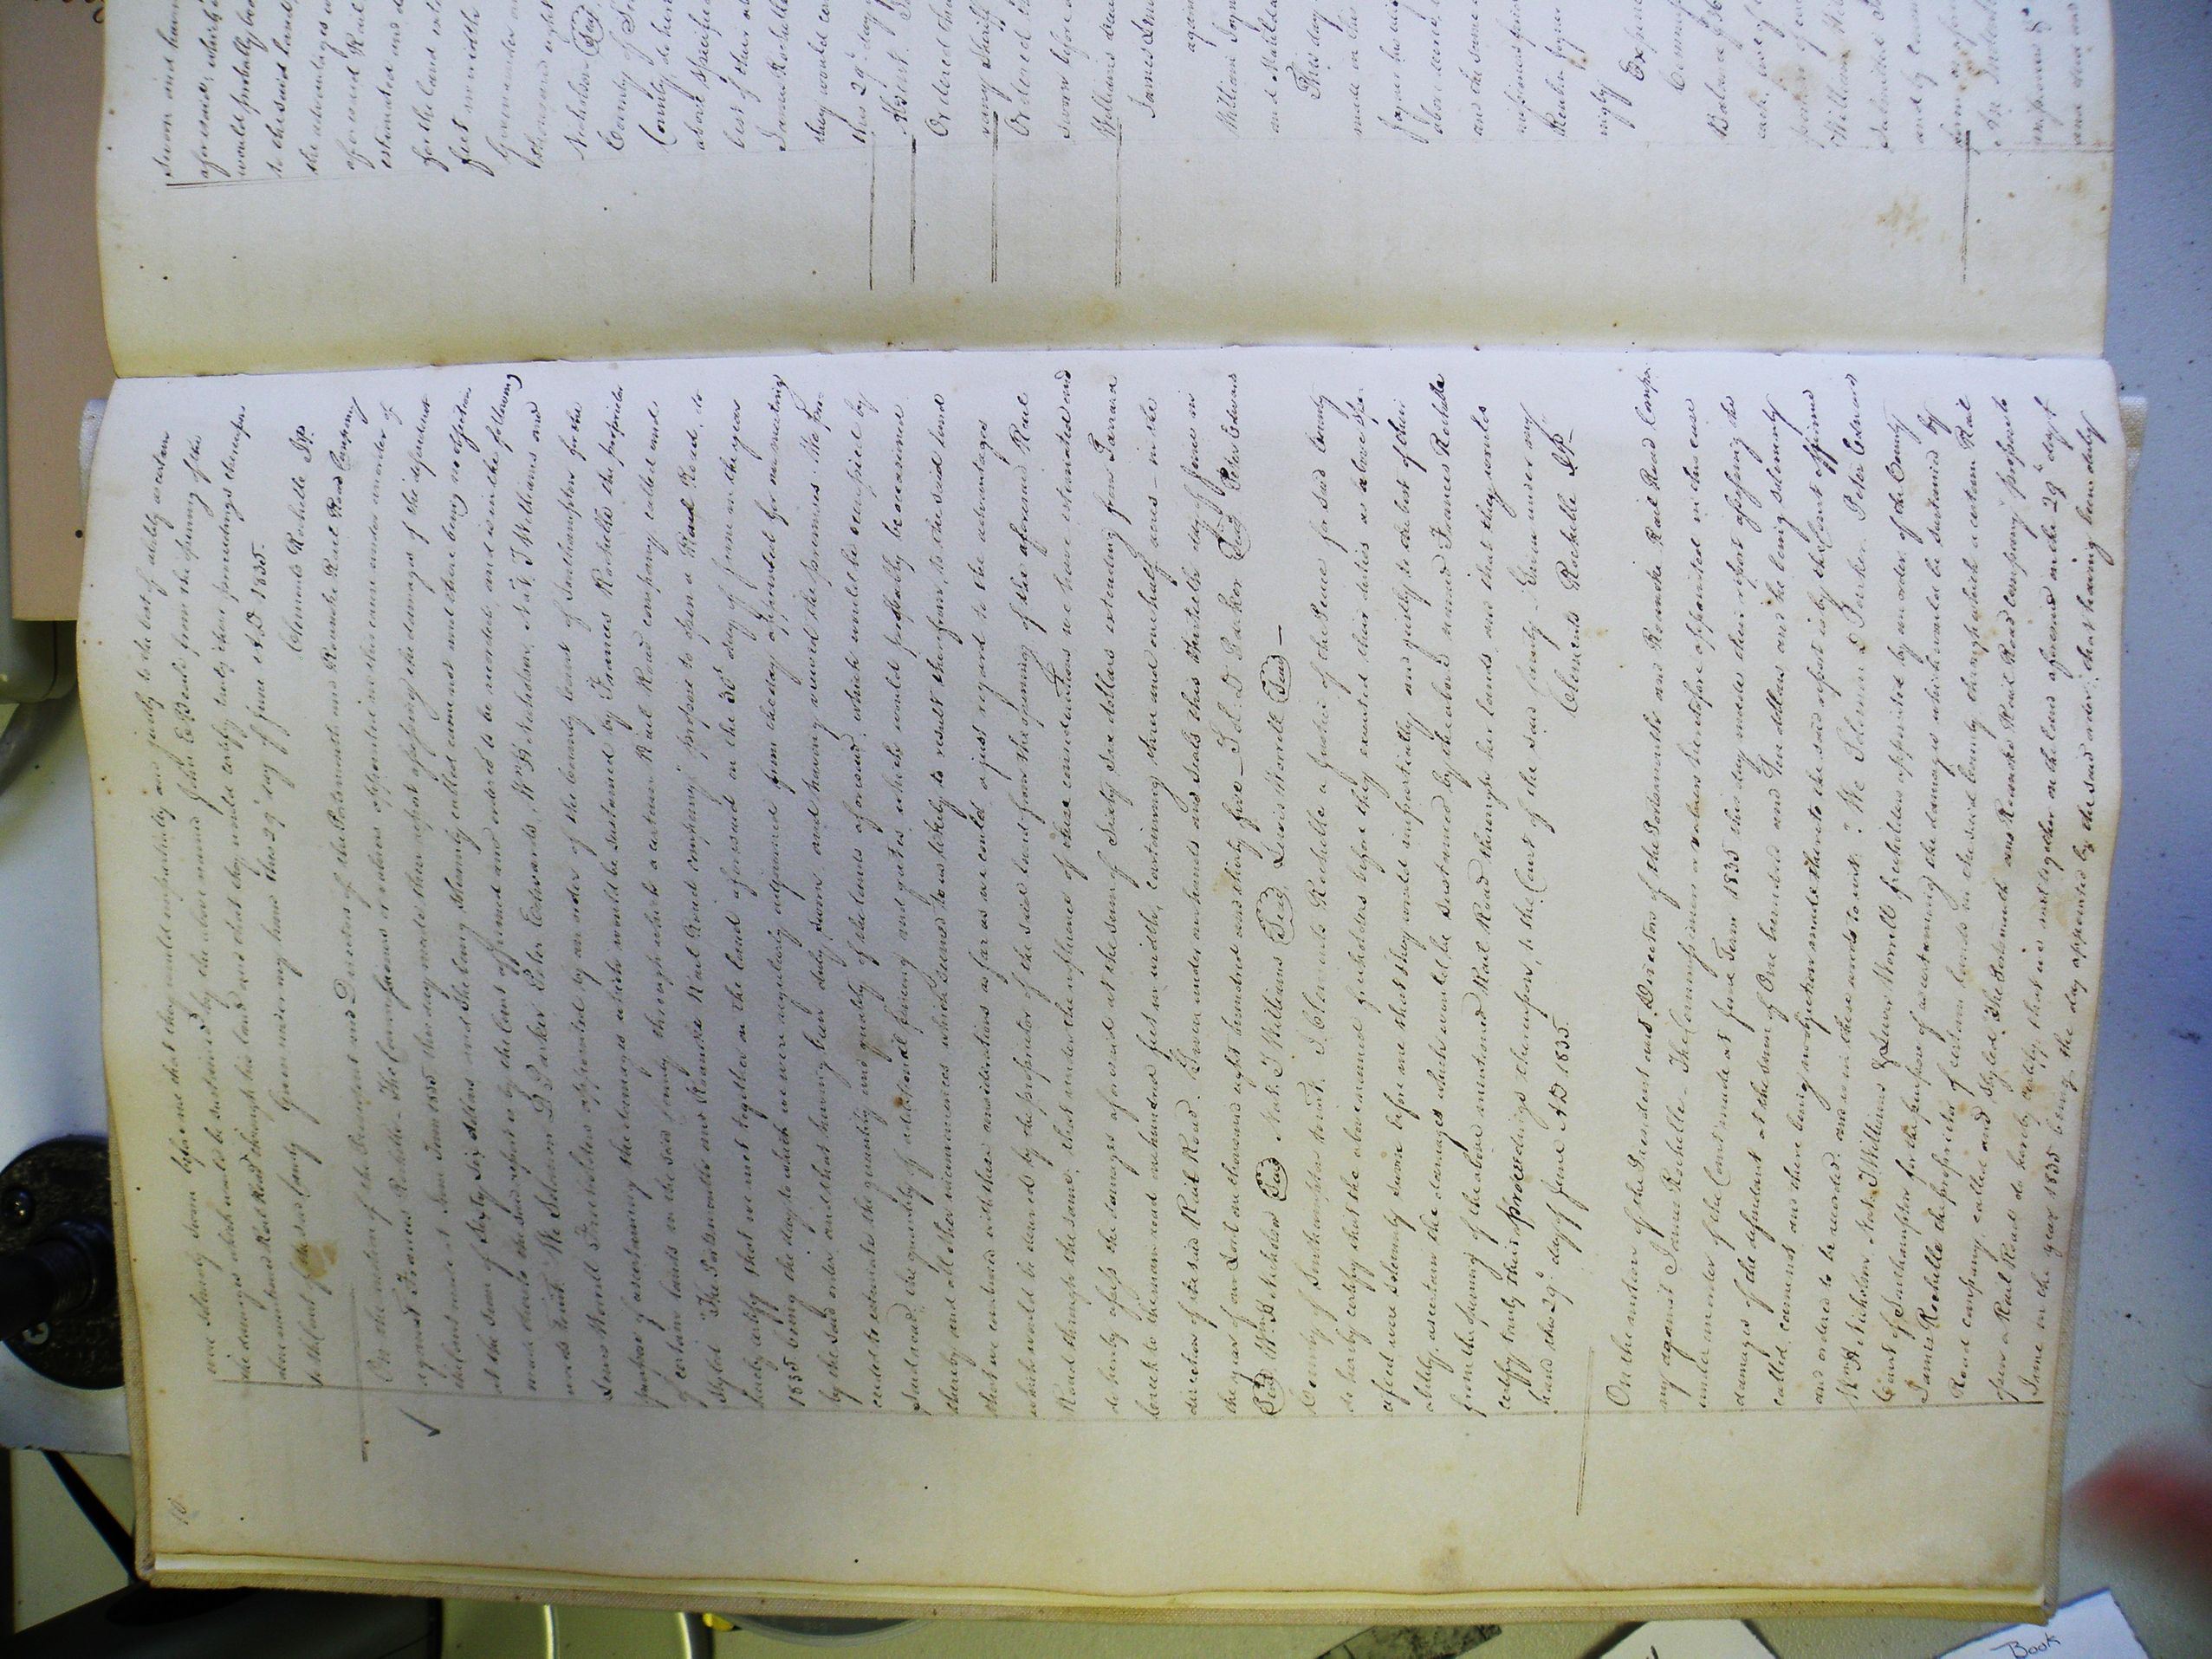 10
were solemnly sworn before me that they would impartially and justly to the best of ability ascertain
the damages which would be sustained by the above named John E Beale from the opening of the
above mentioned Rail Road through his land and that they would certify truly their proceedings thereupon
to the Court of the said County Given under my hand this 29th day of June A D 1835.
Clements Rochelle JP.
On the motion of the President and Directors of the Portsmouth and Roanoke Rail Road Company
against Frances Rochelle - The Commissioners or valuers appointed in this case under an order of
this Court made at June Term 1835 this day made their report assessing the damages of the defendant
at the sum of Sixty Six dollars and She being solemnly called came not and there being no objection
made thereto the said report is by the Court affirmed and ordered to be recorded, and is in the following
words to wit: We Solomon D Parker Peter Edwards, Wm B. Nicholson, Nat. T Williams and
Lewis Worrell Freeholders appointed by an order of the County Court of Southampton for the
purpose of ascertaining the damages which would be sustained by Frances Rochelle the proprietor
of certain lands in the said County through which a certain Rail Road company called and
styled "The Portsmouth and Roanoke Rail Road company" propose to open a Rail Road, do
hereby certify that we met together on the land aforesaid on the 30th day of June in the year
1835 being the day to which we were regularly adjourned from the day appointed for our meeting
by the said order and that having been duly sworn and having viewed the premises We pro-
ceeded to estimate the quantity and quality of the lands aforesaid which would be occupied by
said road the quantity of additional fencing and gates which would probably be occasioned
thereby and all other inconveniences which seemed to us likely to result therefrom, to the said land
that we combined with these considerations as far as we could a just regard to the advantages
which would be derived by the proprietor of the said land from the opening of the aforesaid Rail
Road through the same; that under the influence of these considerations we have estimated and
do hereby assess the damages aforesaid at the sum of Sixty Six dollars extending from Tanner
branch to the main road one hundred feet in width, containing three and one half acres - in the
direction of the said Rail Road. Given under our hands and seals this thirtieth day of June in
the year of our Lord one thousand eight hundred and thirty five - Sol. D. Parker Seal Peter Edwards
Seal Wm B Nicholson Seal Nat. T Williams Seal Lewis Worrell Seal -
County of Southampton to wit: I Clements Rochelle a Justice of the Peace for said County
do hereby certify that the abovenamed freeholders before they executed their duties as above spe-
cified were solemnly sworn before me that they would impartially and justly to the best of their
ability ascertain the damages which would be sustained by the above named Frances Rochelle
from the opening of the above mentioned Rail Road through her lands and that they would
certify truly their proceedings thereupon, to the Court of the said County - Given under my
hand this 29th day of June A D 1835.
Clements Rochelle JP-
On the motion of the President and Directors of the Portsmouth and Roanoke Rail Road Compa-
ny against James Rochelle - The Commissioners or valuers heretofore appointed in this case
under an order of the Court made at June Term 1835 this day made their report assessing the
damages of the defendant at the sum of One hundred and Ten dollars and he being solemnly
called, came not and there being no objection made thereto the said report is by the Court affirmed
and ordered to be recorded. and is in these words to wit: "We Solomon D Parker, Peter Edwards
Wm B Nicholson Nat. T Williams & Lewis Worrell freeholders appointed by an order of the County
Court of Southampton for the purpose of ascertaining the damages which would be sustained by
James Rochelle the proprietor of certain lands in the said County through which a certain Rail
Road company, called and styled "The Portsmouth and Roanoke Rail Road company" propose to
open a Rail Road do hereby certify, that we met together on the land aforesaid on the 29th day of
June in the year 1835 being the day appointed by the said order; that having been duly
sworn and having
aforesaid which
would probably be
to the said land;
the advantages
aforesaid Rail
estimated and
for the land
feet in width
Given under our
thousand eight
Nicholson Seal
County of
County do hereby
above specified
best of their
James Rochelle
they would
this 29th day
Robert
Ordered that
Sheriff
Ordered
sworn before
Williams
James
against
William
and
This day
made in this
and the same
Reuben
Balance
each
William
submitted
and
Book